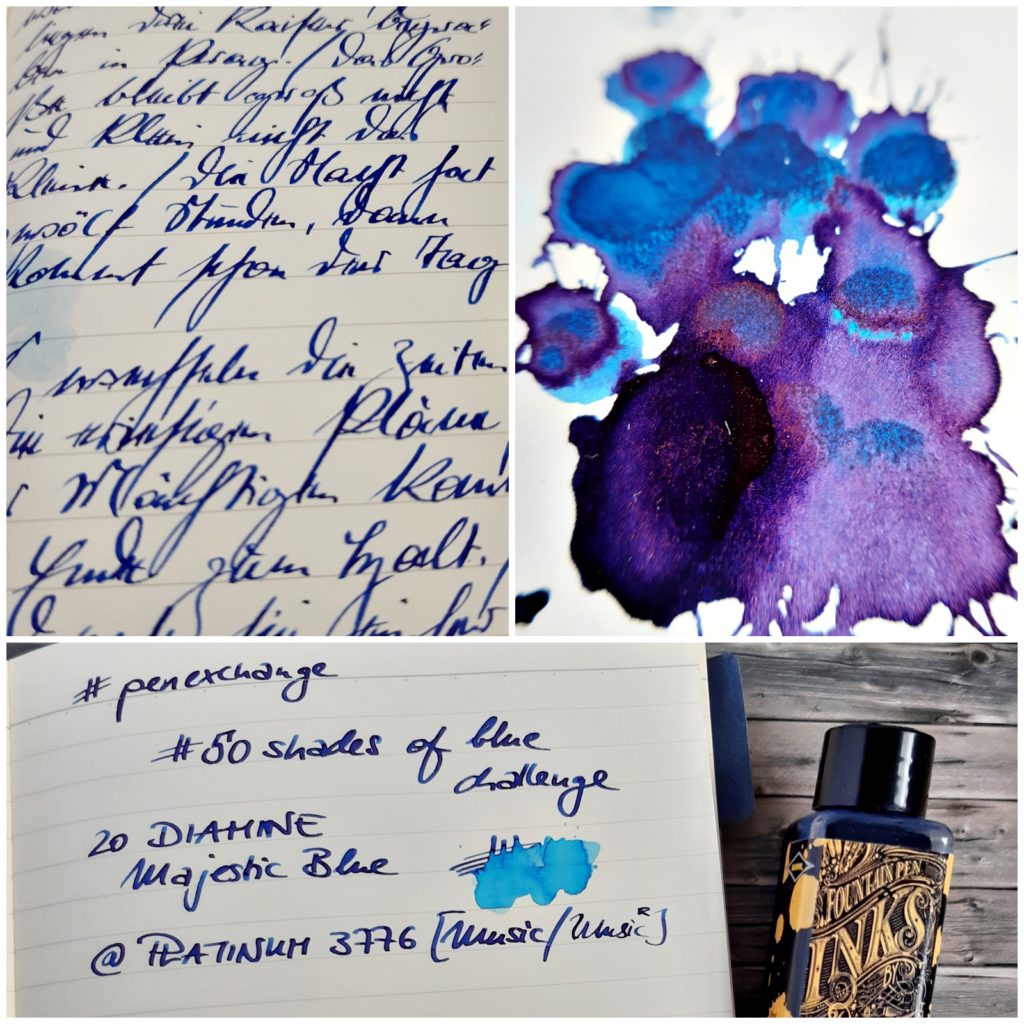 liegen drei Kaiser begra=
ben in Prag. / Das Gro=
ße bleibt groß nicht
und klein nicht das
Kleine. / Die Nacht hat
zwölf Stunden, dann
kommt schon der Tag
wechseln die Zeiten
Die riesigen Pläne
Mächtigen kom
Ende zum Halt.
#penexchange
#50 shades of blue
challenge
20 DIAMINE
Majestic Blue
@ PLATINUM 3776 [Music/Music]
FOUNTAIN PEN
INKS
BY